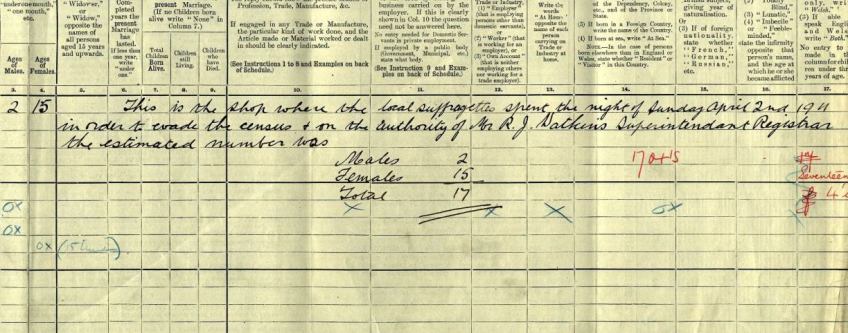 under one month,"
"one month,"
etc.
Ages
of
Males.
Ages
of
Females.
"Widower,"
or
"Widow,"
opposite the
names of
all persons
aged 15 years
and upwards.
Completed
years the
present
Marriage
has
lasted.
If less than
one year
write
"under
one."
present Marriage.
(If no Children born
alive write "None" in
Column 7.)
Total
Children
Born
Alive.
Children
still
Living.
Children
who
have
Died.
Profession, Trade, Manufacture, &c.
If engaged in any Trade or Manufacture,
the particular kind of work done, and the
Article made or Material worked or dealt
in should be clearly indicated.
(See Instructions 1 to 8 and Examples on back
of Schedule.)
business carried on by the
employer. If this is clearly
shown in Col. 10 the question
need not be answered here.
No entry needed for Domestic Servants
in private employment.
If employed by a public body
(Government, Municipal, etc.)
state what body.
(See Instruction 9 and Examples
on back of Schedule.)
Trade or Industry.
(1) "Employer"
(that is employing
persons other than
domestic servants),
or
(2) "Worker" (that
is working for an
employer), or
(3) "Own Account"
(that is neither
employing others
nor working for a
trade employer).
Write the
words
"At Home"
opposite the
name of
each person
carrying on
Trade or
Industry at
Home.
of the Dependency, Colony,
etc., and of the Province or
State.
(3) If born in a Foreign Country,
write the name of the Country.
(4) If born at sea, write "At Sea."
NOTE.—In the case of persons
born elsewhere than in England or
Wales, state whether "Resident" or
"Visitor" in this Country.
giving year of
naturalisation.
Or
(3) If of foreign
nationality,
state whether
"French,"
"German,"
"Russian,"
etc.
(2) "Totally
Blind,"
(3) "Lunatic,"
(4) "Imbecile"
or "Feeble-
minded,"
state the infirmity
opposite that
person's name,
and the age at
which he or she
became afflicted
3. 4. 5. 6. 7. 8. 9. 10. 11. 12. 13. 14. 15. 16. 17.
2 15 This is the shop where the local suffragettes spent the night of Sunday April 2nd 1911
in order to evade the census & on the authority of Mr R. J. Watkins Superintendant Registrar
the estimated number was
Males 2
Females 15
Total 17
17
Seventeen